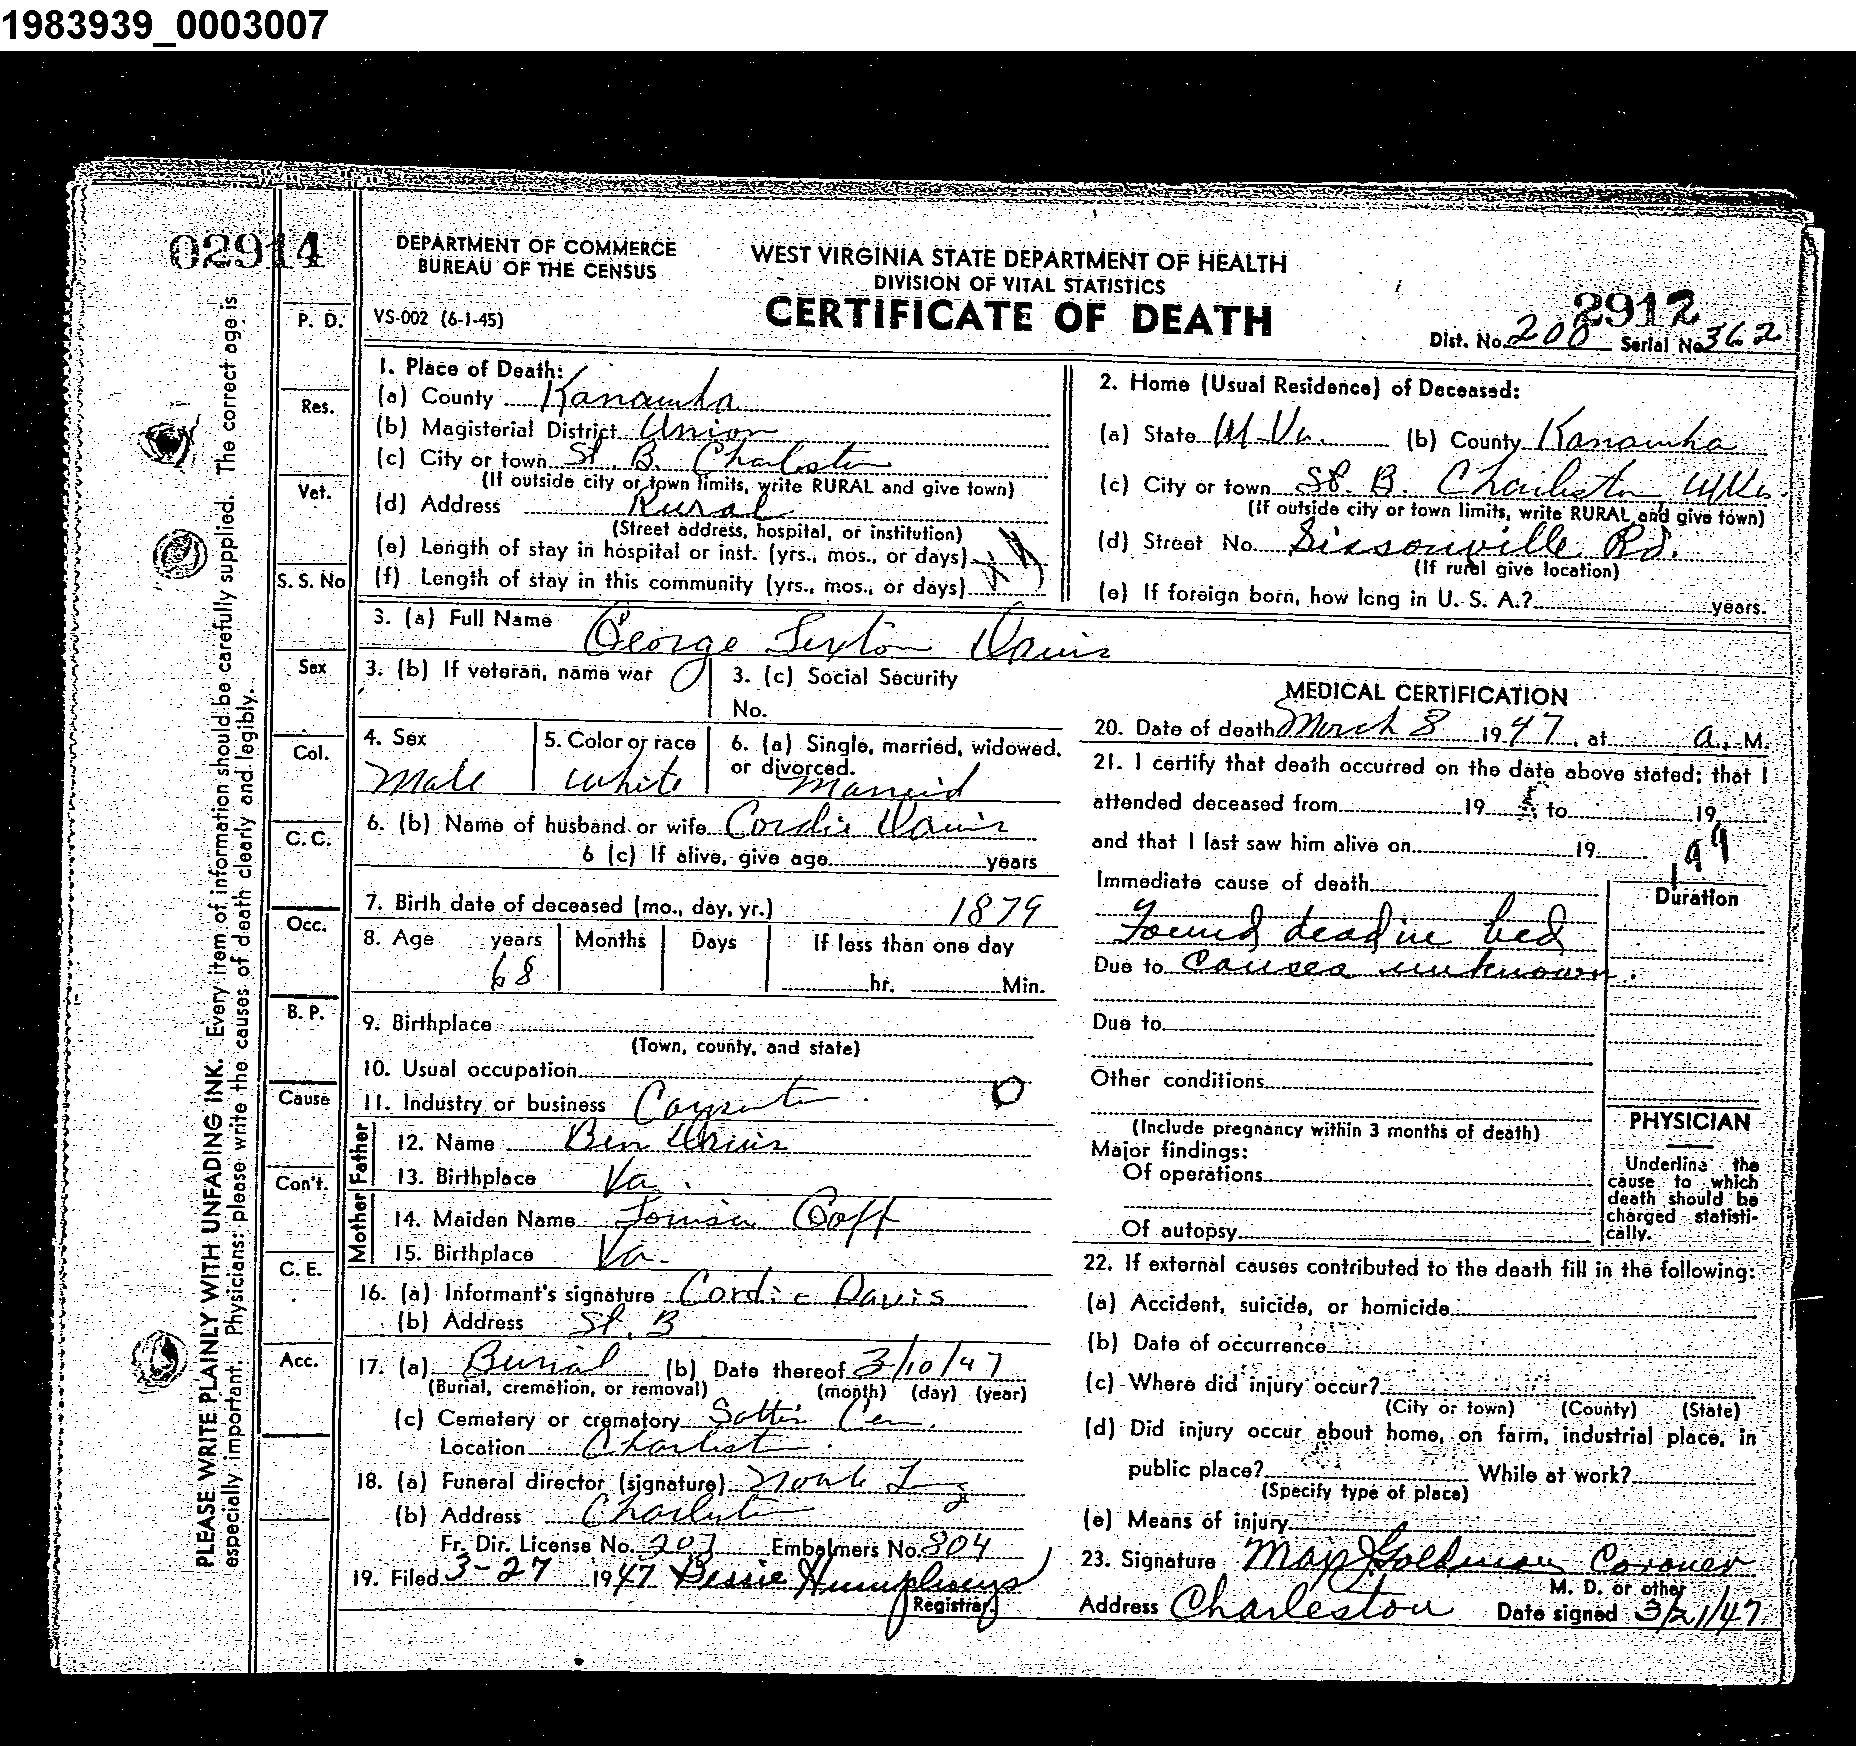 1983939_0003007
02914
DEPARTMENT OF COMMERCE
BUREAU OF THE CENSUS
WEST VIRGINIA STATE DEPARTMENT OF HEALTH
DIVISION OF VITAL STATISTICS
CERTIFICATE OF DEATH
VS-002 (6-1-45)
2912
Dist. No. 200 Serial No. 362
PLEASE WRITE PLAINLY WITH UNFADING INK. Every item of information should be carefully supplied. The correct age is
especially important. Physicians: please write the causes of death clearly and legibly.
P. D.
Res.
Vet.
S. S. No
Sex
Col.
C. C.
Occ.
B. P.
Cause
Con't.
C. E.
Acc.
1. Place of Death:
(a) County Kanawha
(b) Magisterial District Union
(c) City or town St. B. Charleston
(If outside city or town limits, write RURAL and give town)
(d) Address Rural
(Street address, hospital, or institution)
(e) Length of stay in hospital or inst. (yrs., mos., or days)
(f) Length of stay in this community (yrs., mos., or days)
2. Home (Usual Residence) of Deceased:
(a) State W. Va. (b) County Kanawha
(c) City or town St. B. Charleston W Va.
(If outside city or town limits, write RURAL and give town)
(d) Street No. Sissonville Rd.
(If rural give location)
(e) If foreign born, how long in U. S. A.? years.
3. (a) Full Name George Sexton Davis
3. (b) If veteran, name war
3. (c) Social Security
No.
4. Sex Male
5. Color or race White
6. (a) Single, married, widowed,
or divorced. Married
6. (b) Name of husband or wife Cordie Davis
6 (c) If alive, give age years
7. Birth date of deceased (mo., day, yr.) 1879
8. Age years 68 Months Days If less than one day
hr. Min.
9. Birthplace
(Town, county, and state)
10. Usual occupation
11. Industry or business Carpenter 0
Father
12. Name Ben Davis
13. Birthplace Va.
Mother
14. Maiden Name Louisa Goff
15. Birthplace Va.
16. (a) Informant's signature Cordie Davis
(b) Address St. B
17. (a) Burial (b) Date thereof 3/10/47
(Burial, cremation, or removal) (month) (day) (year)
(c) Cemetery or crematory Cem.
Location Charleston
18. (a) Funeral director (signature)
(b) Address Charleston
Fr. Dir. License No. 203 Embalmers No. 804
19. Filed 3-27 1947 Bessie Humphreys
Registrar
MEDICAL CERTIFICATION
20. Date of death March 8 1947, at a. M.
21. I certify that death occurred on the date above stated; that I
attended deceased from 19 to 19
and that I last saw him alive on 19
199
Immediate cause of death
Found dead in bed
Due to Causes unknown.
Due to
Other conditions
(Include pregnancy within 3 months of death)
Major findings:
Of operations
Of autopsy
Duration
PHYSICIAN
Underline the
cause to which
death should be
charged statisti-
cally.
22. If external causes contributed to the death fill in the following:
(a) Accident, suicide, or homicide
(b) Date of occurrence
(c) Where did injury occur?
(City or town) (County) (State)
(d) Did injury occur about home, on farm, industrial place, in
public place? While at work?
(Specify type of place)
(e) Means of injury
23. Signature Max J Goldman Coroner
M. D. or other
Address Charleston Date signed 3/21/47